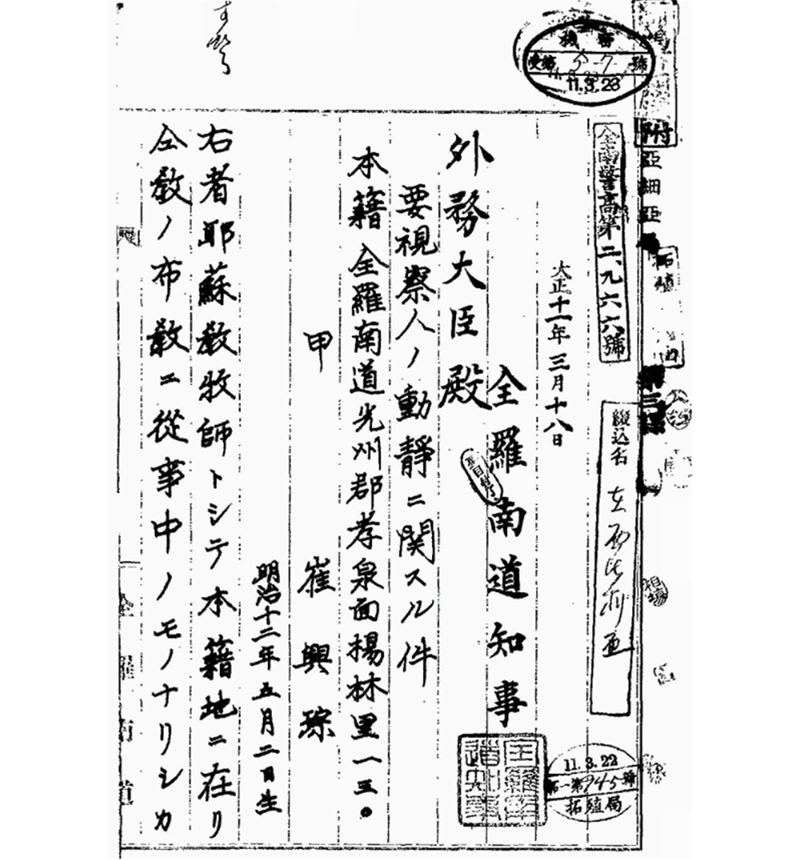 機密
受第 號
11.3.23
附
亞細亞
第三課
全南警高第二、九六六號
綴込名
大正十一年三月十八日
全羅南道知事
外務大臣殿
要視察人ノ動靜ニ関スル件
本籍全羅南道光州郡孝泉面楊林里一五〇
甲 崔興琮
明治十二年五月二日生
右者耶蘇教牧師トシテ本籍地ニ在リ
仝教ノ布教ニ從事中ノモノナリシカ
全羅南道
11.3.22
拓一第945號
拓殖局